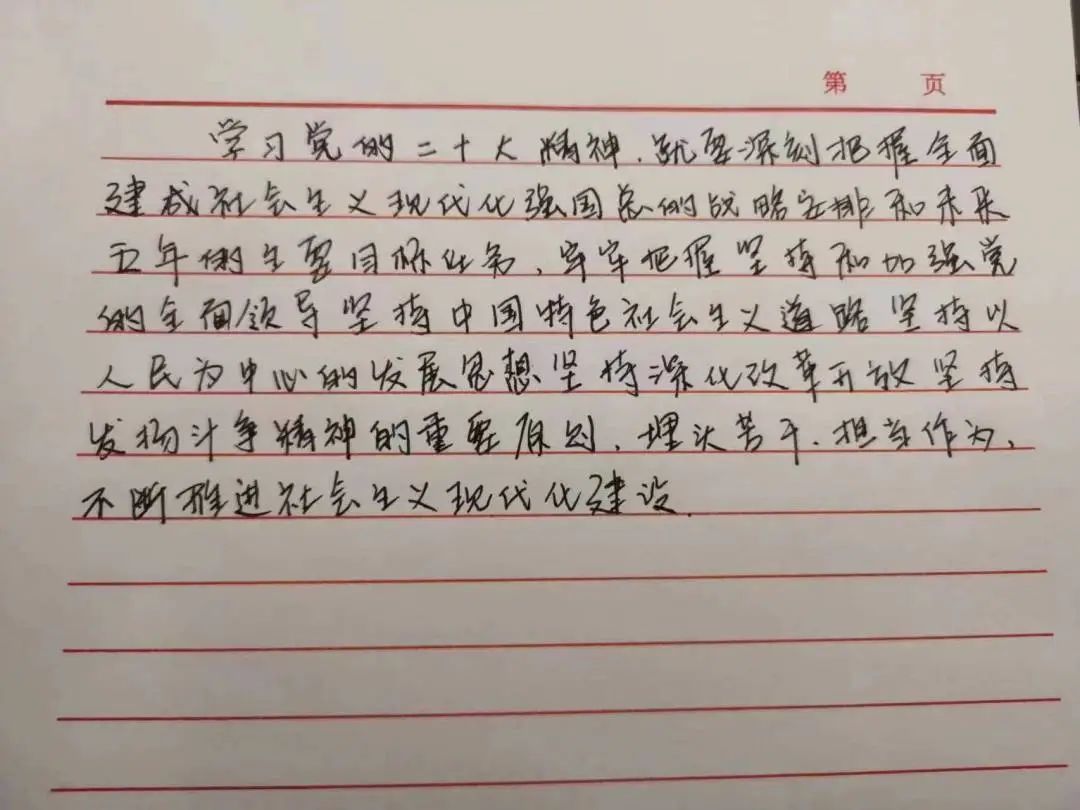 第 页
学习党的二十大精神,就要深刻把握全面
建成社会主义现代化强国总的战略安排和未来
五年的主要目标任务、牢牢把握坚持和加强党
的全面领导坚持中国特色社会主义道路坚持以
人民为中心的发展思想坚持深化改革开放坚持
发扬斗争精神的重要原则、埋头苦干、担当作为、
不断推进社会主义现代化建设.